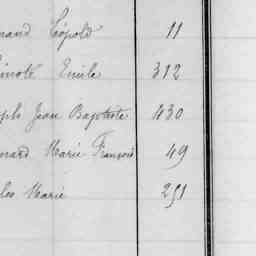 mand Léopold 11
Emile 312
eph Jean Baptiste 430
nard Marie François 49
les Marie 251